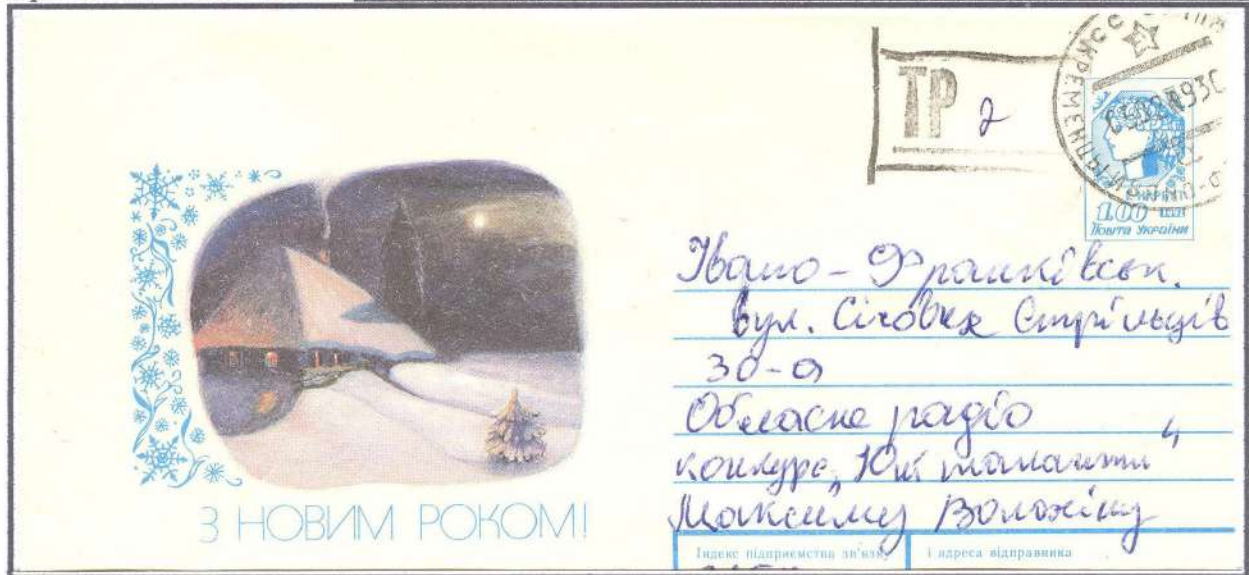 ТР 2
1.00
Пошта України
Івано-Франківськ.
вул. Січових Стрільців
30-а
Обласне радіо
конкурс „Юні таланти"
Максиму Волохіну
З НОВИМ РОКОМ!
Індекс підприємства зв'язку і адреса відправника